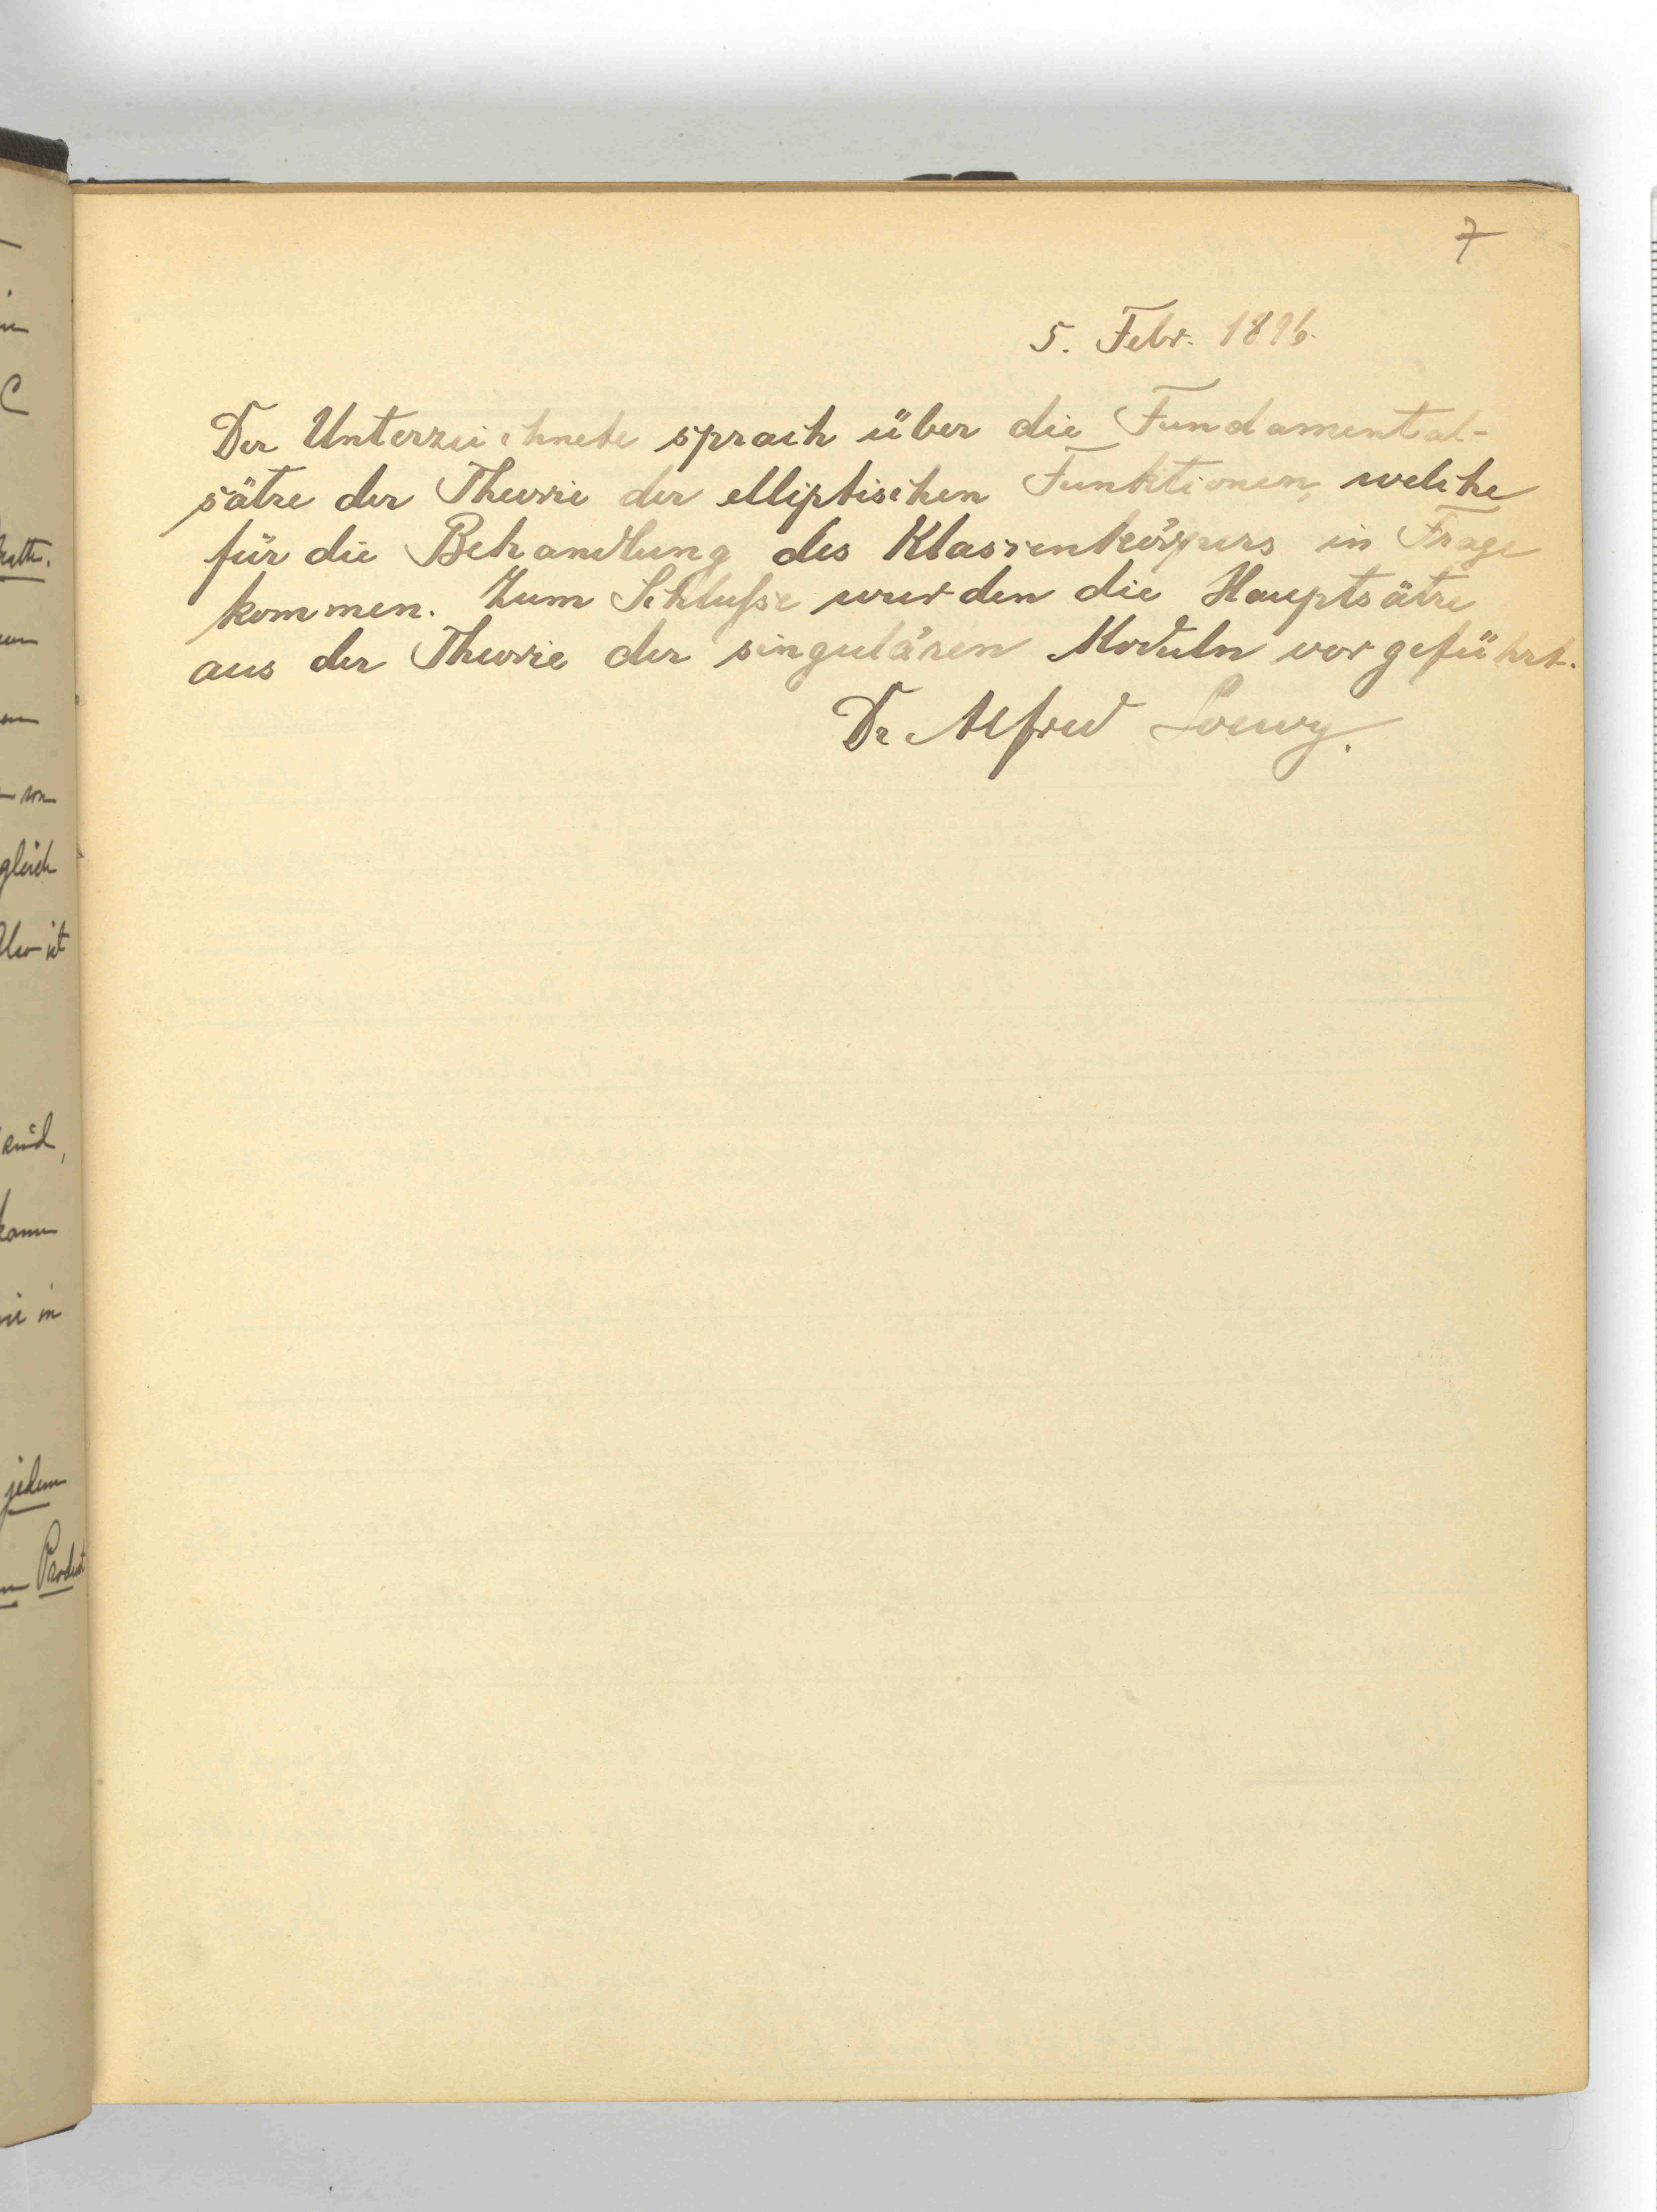 7
5. Febr. 1896.
Der Unterzeichnete sprach über die Fundamental-
sätze der Theorie der elliptischen Funktionen, welche
für die Behandlung des Klassenkörpers in Frage
kommen. Zum Schluſse wurden die Hauptsätze
aus der Theorie der singulären Moduln vorgeführt.
Dr Alfred Loewy.
gleich
Also ist
kann
jedem
Product